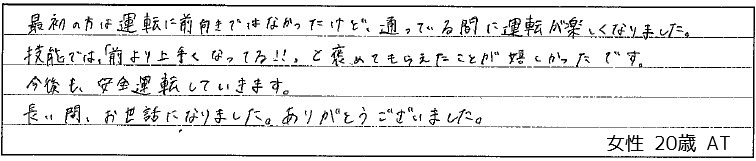 最初の方は運転に前向きではなかったけど、通っている間に運転が楽しくなりました。
技能では、「前より上手くなってる!!」と褒めてもらえたことが嬉しかったです。
今後も、安全運転していきます。
長い間、お世話になりました。ありがとうございました。
女性 20歳 AT